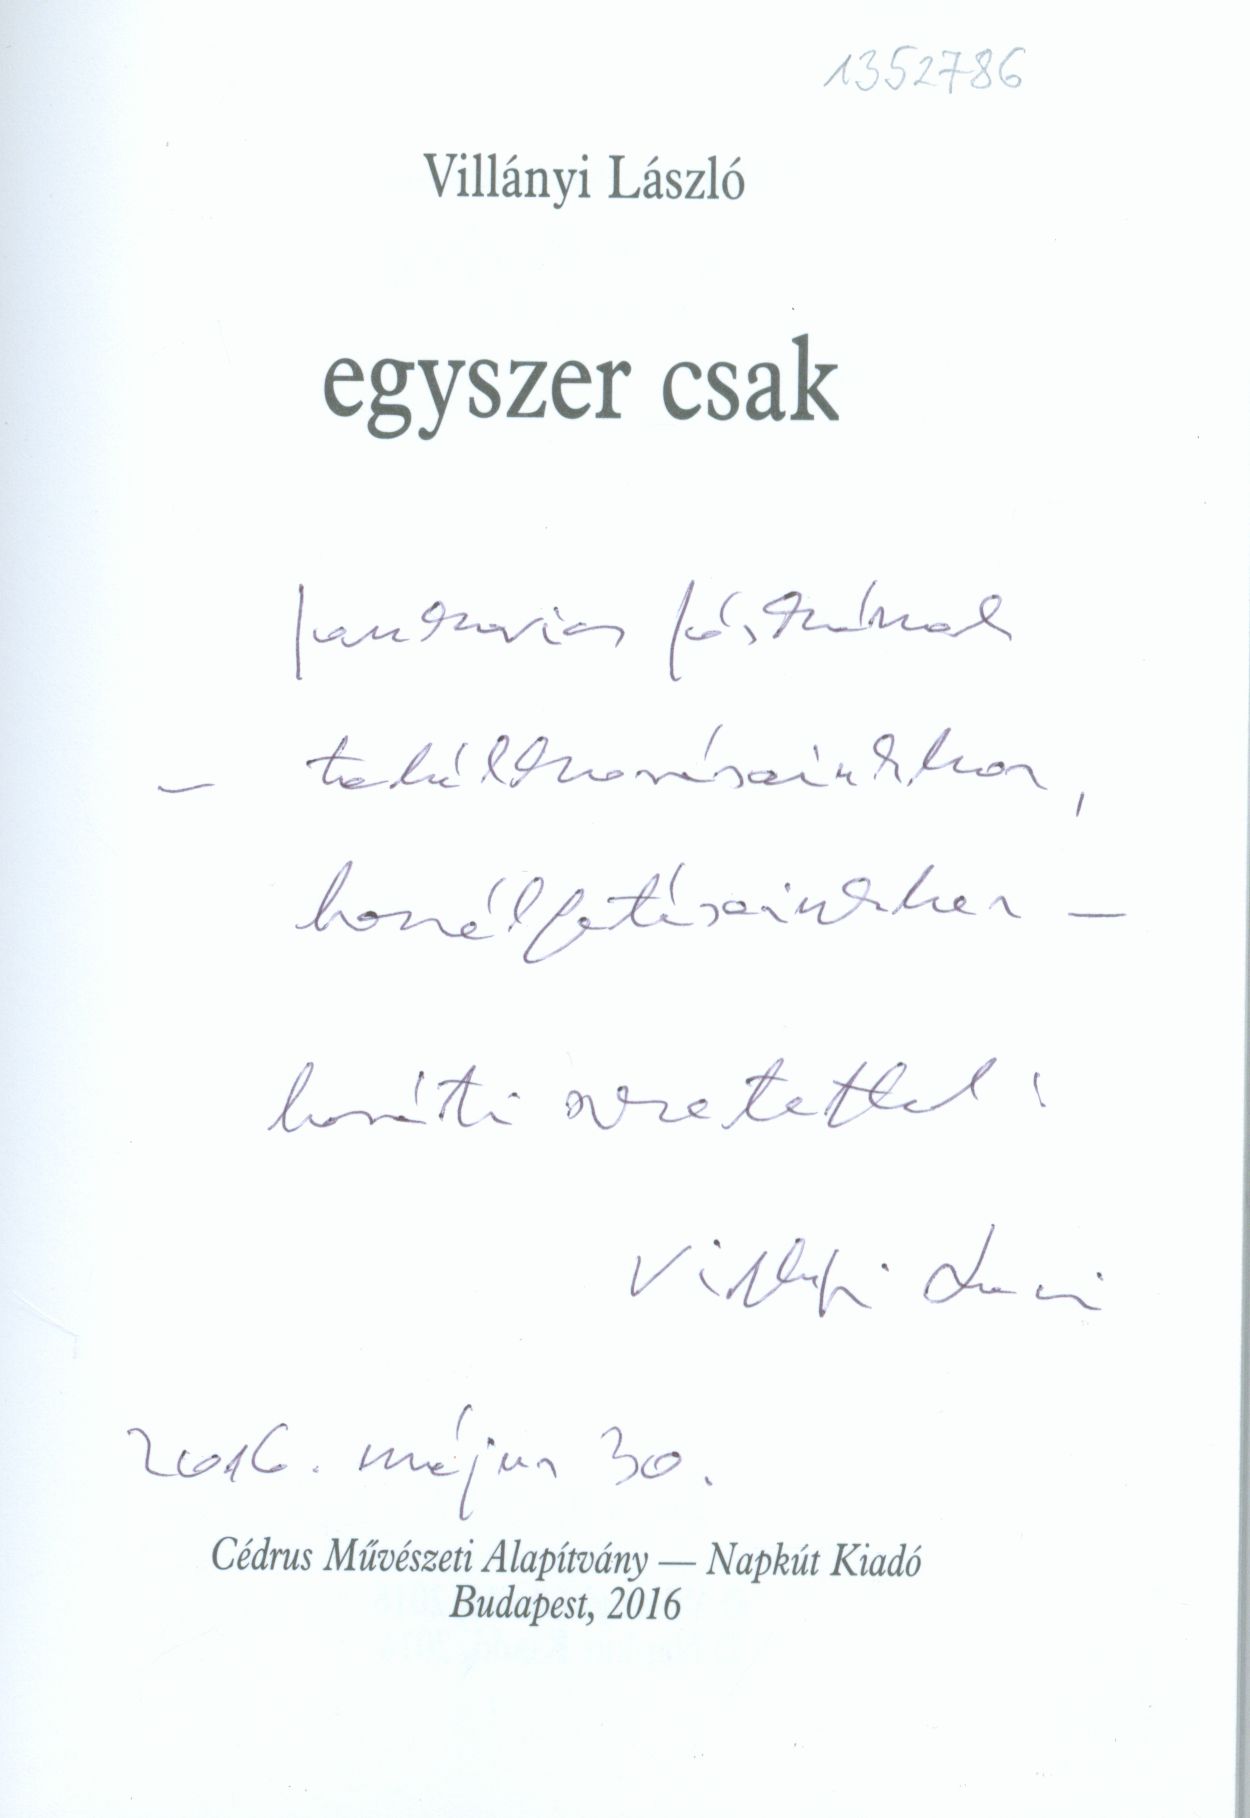 1352786
Villányi László
egyszer csak
Jankovics Jóskának
– találkozásainkhoz,
beszélgetéseinkhez –
baráti szeretettel:
Villányi Laci
2016. május 30.
Cédrus Művészeti Alapítvány — Napkút Kiadó
Budapest, 2016